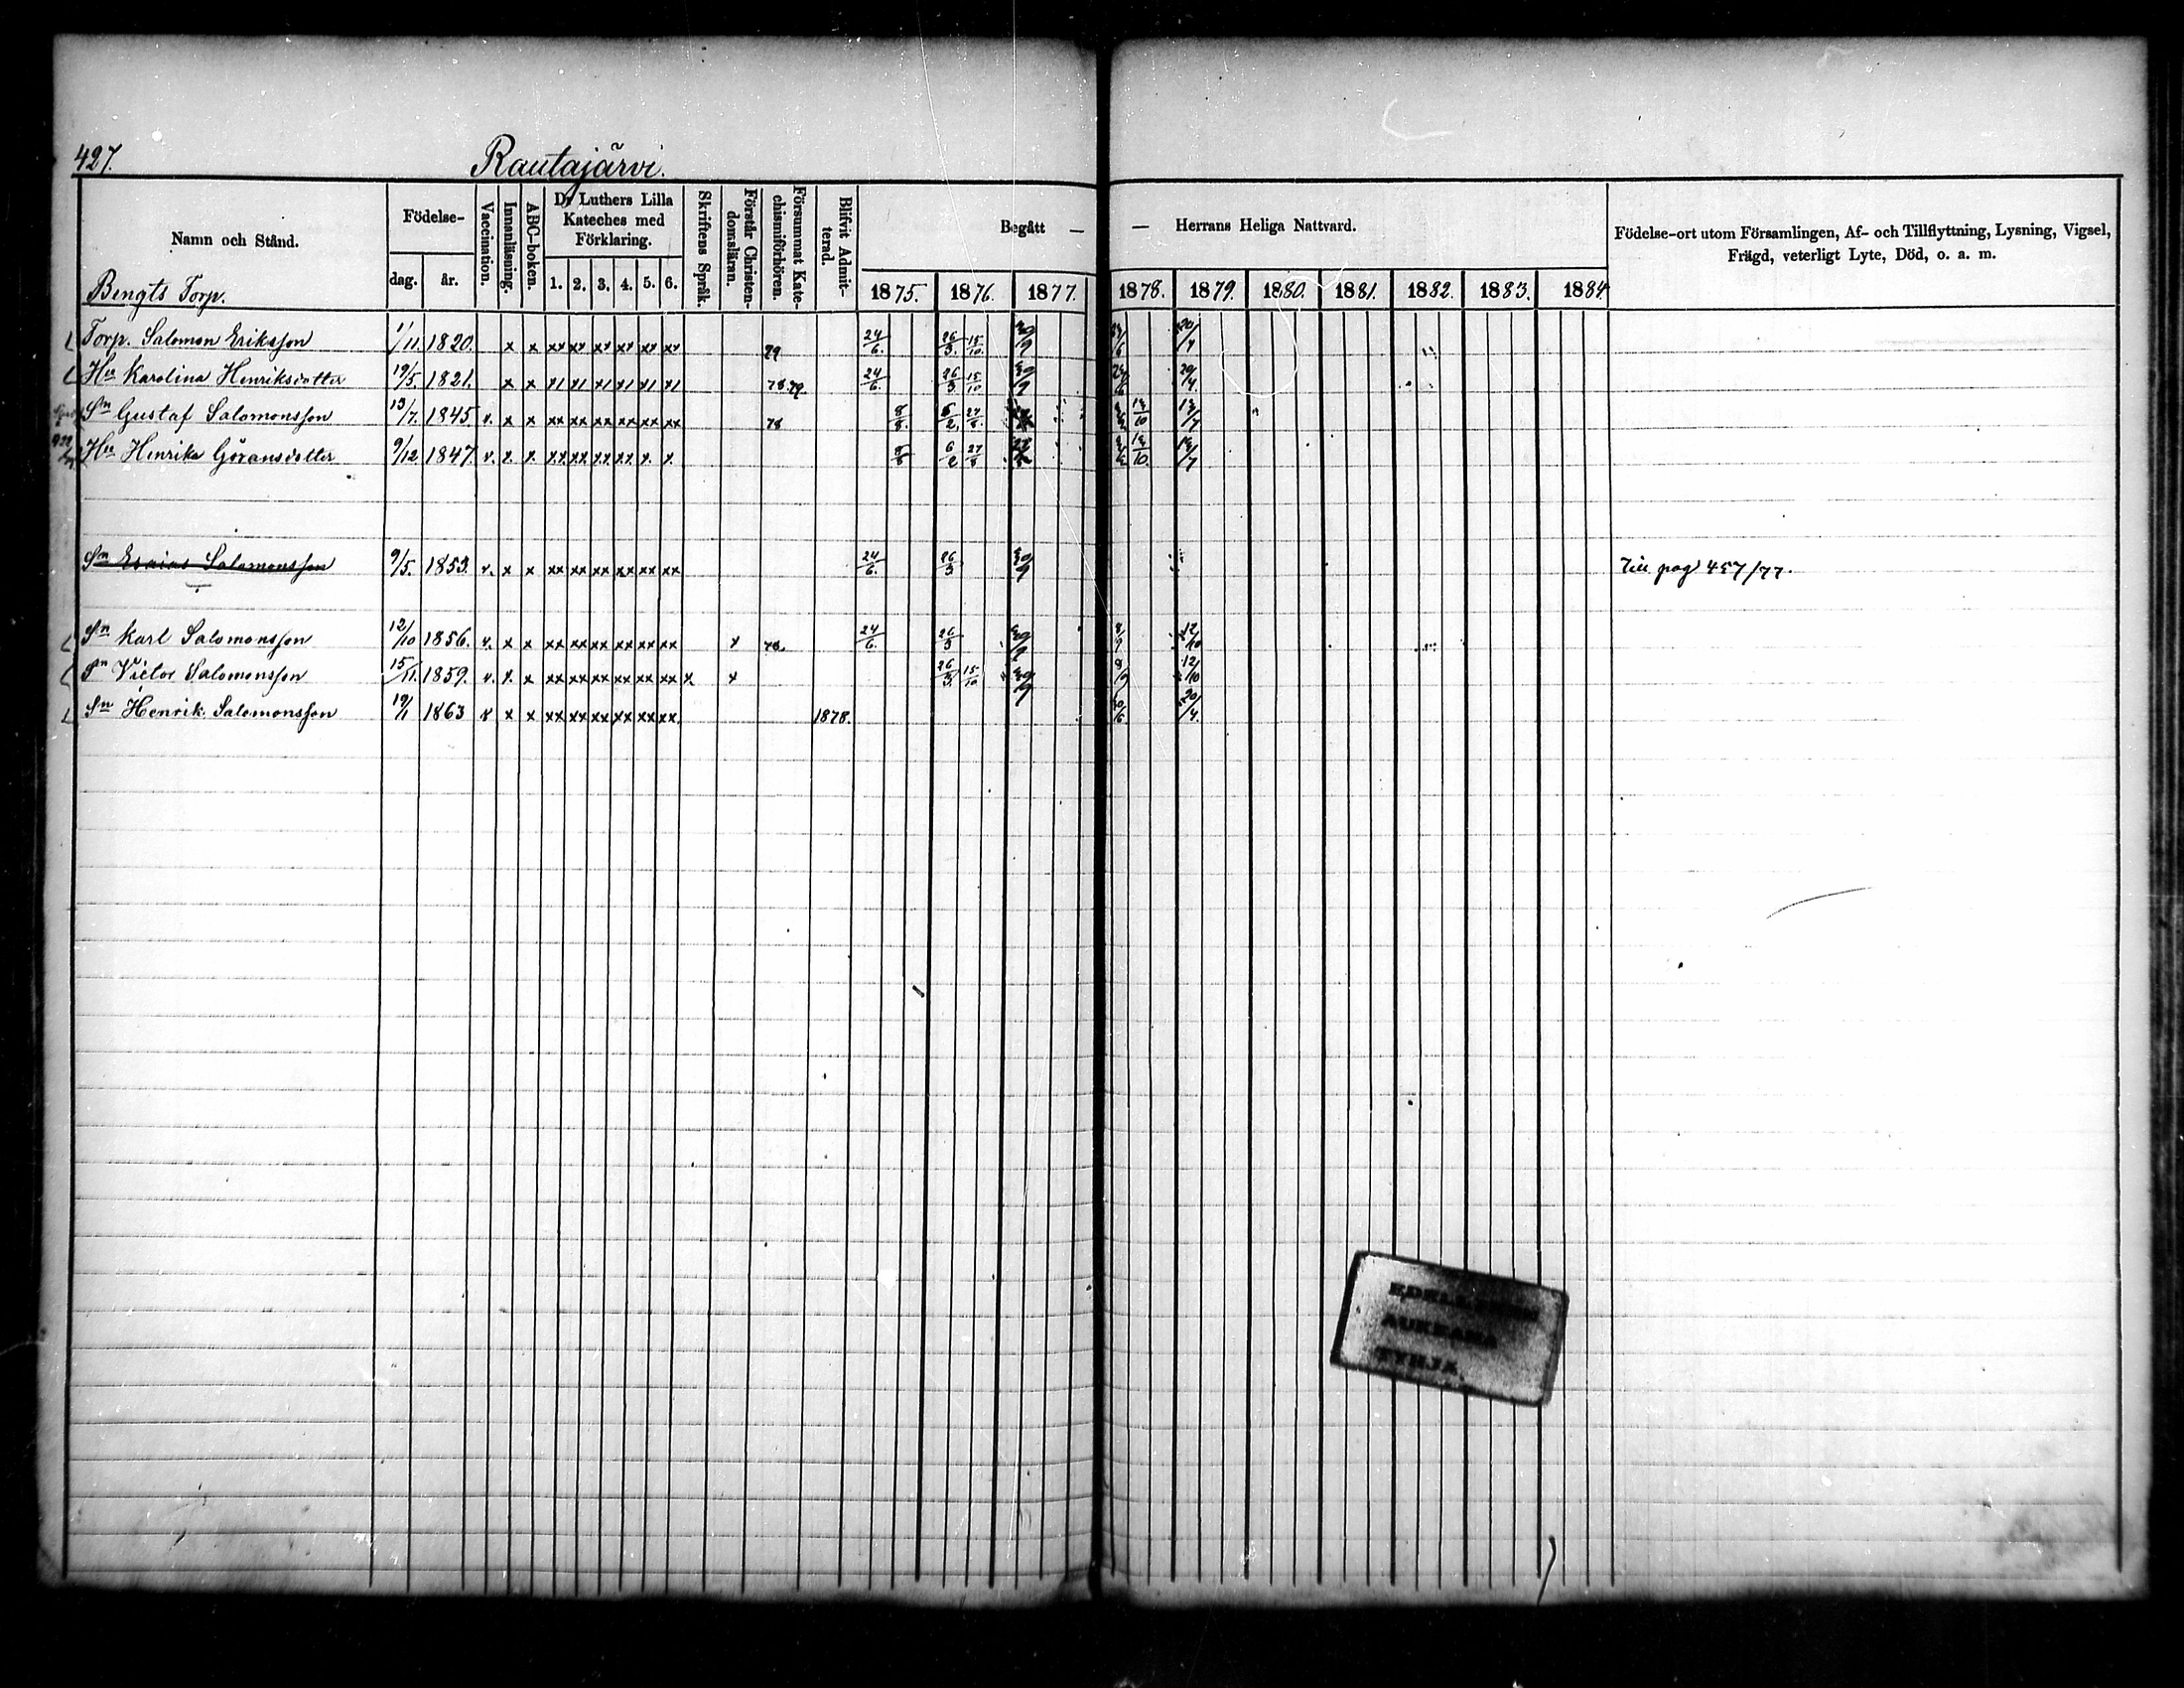 427.
Rautajärvi.
Namn och Stånd.
Födelse-
dag. år.
Vaccination.
Innanläsning.
ABC-boken.
Dr Luthers Lilla
Kateches med
Förklaring.
1. 2. 3. 4. 5. 6.
Skriftens Språk
Förstår Christen-
domsläran.
Försummat Kate-
chismiförhören.
Blifvit Admit-
terad.
Begått — — Herrans Heliga Nattvard.
1875. 1876. 1877. 1878. 1879. 1880. 1881. 1882. 1883. 1884
Födelse-ort utom Församlingen, Af- och Tillflyttning, Lysning, Vigsel,
Frägd, veterligt Lyte, Död, o. a. m.
Bengts Torp.
Torp. Salomon Eriksson 1/11. 1820. x x xx xx xx xx xx xx 79 24/6. 26/3. 15/10. 30/9 20/4
Hu Karolina Henriksdotter 19/5. 1821. x x x1 x1 x1 x1 x1 x1 78.79. 24/6. 26/3 15/10 30/9 20/4
Sn Gustaf Salomonsson 13/7. 1845 v. x x xx xx xx xx xx xx 78 8/8. 6/2. 27/8. 13/10 13/7
Hu Henrika Göransdotter 9/12 1847. v. x. x. xx xx xx xx x. x. 8/8 6/2 27/8 13/10. 13/7
Sn Esaias Salomonsson 9/5. 1853. v. x x xx xx xx xx xx xx 24/6. 26/3 30/9 Till pag 457/77.
Sn Karl Salomonsson 12/10 1856. v. x x xx xx xx xx xx xx x 78. 24/6. 26/3 30/9 8/9 12/10
Sn Victor Salomonsson 15/11. 1859. v. x. x xx xx xx xx xx xx x x 26/3. 15/10 30/9 8/9 12/10
Sn Henrik Salomonsson 19/1 1863 v x x xx xx xx xx xx xx. 1878. 30/6 20/4.
EDELLINEN
AUKEAMA
TYHJÄ.